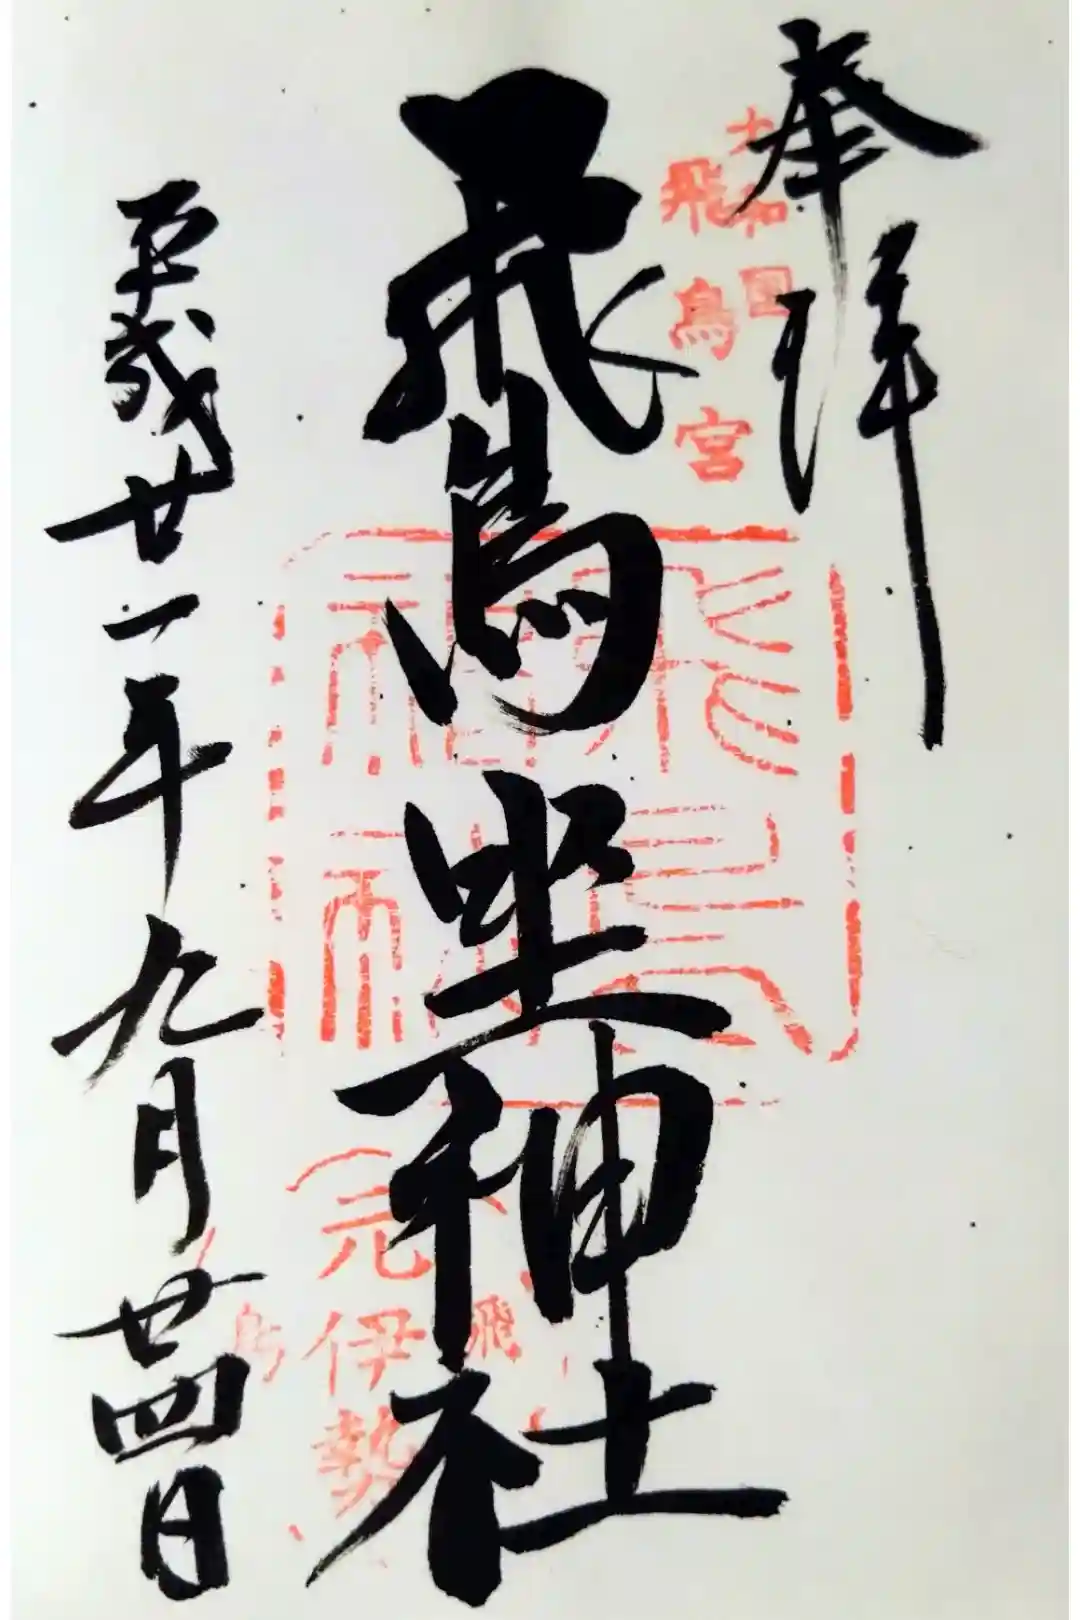 奉拝
大和国
飛鳥宮
飛鳥坐神社
飛鳥
神社
元伊勢
飛鳥
平成廿一年九月廿四日